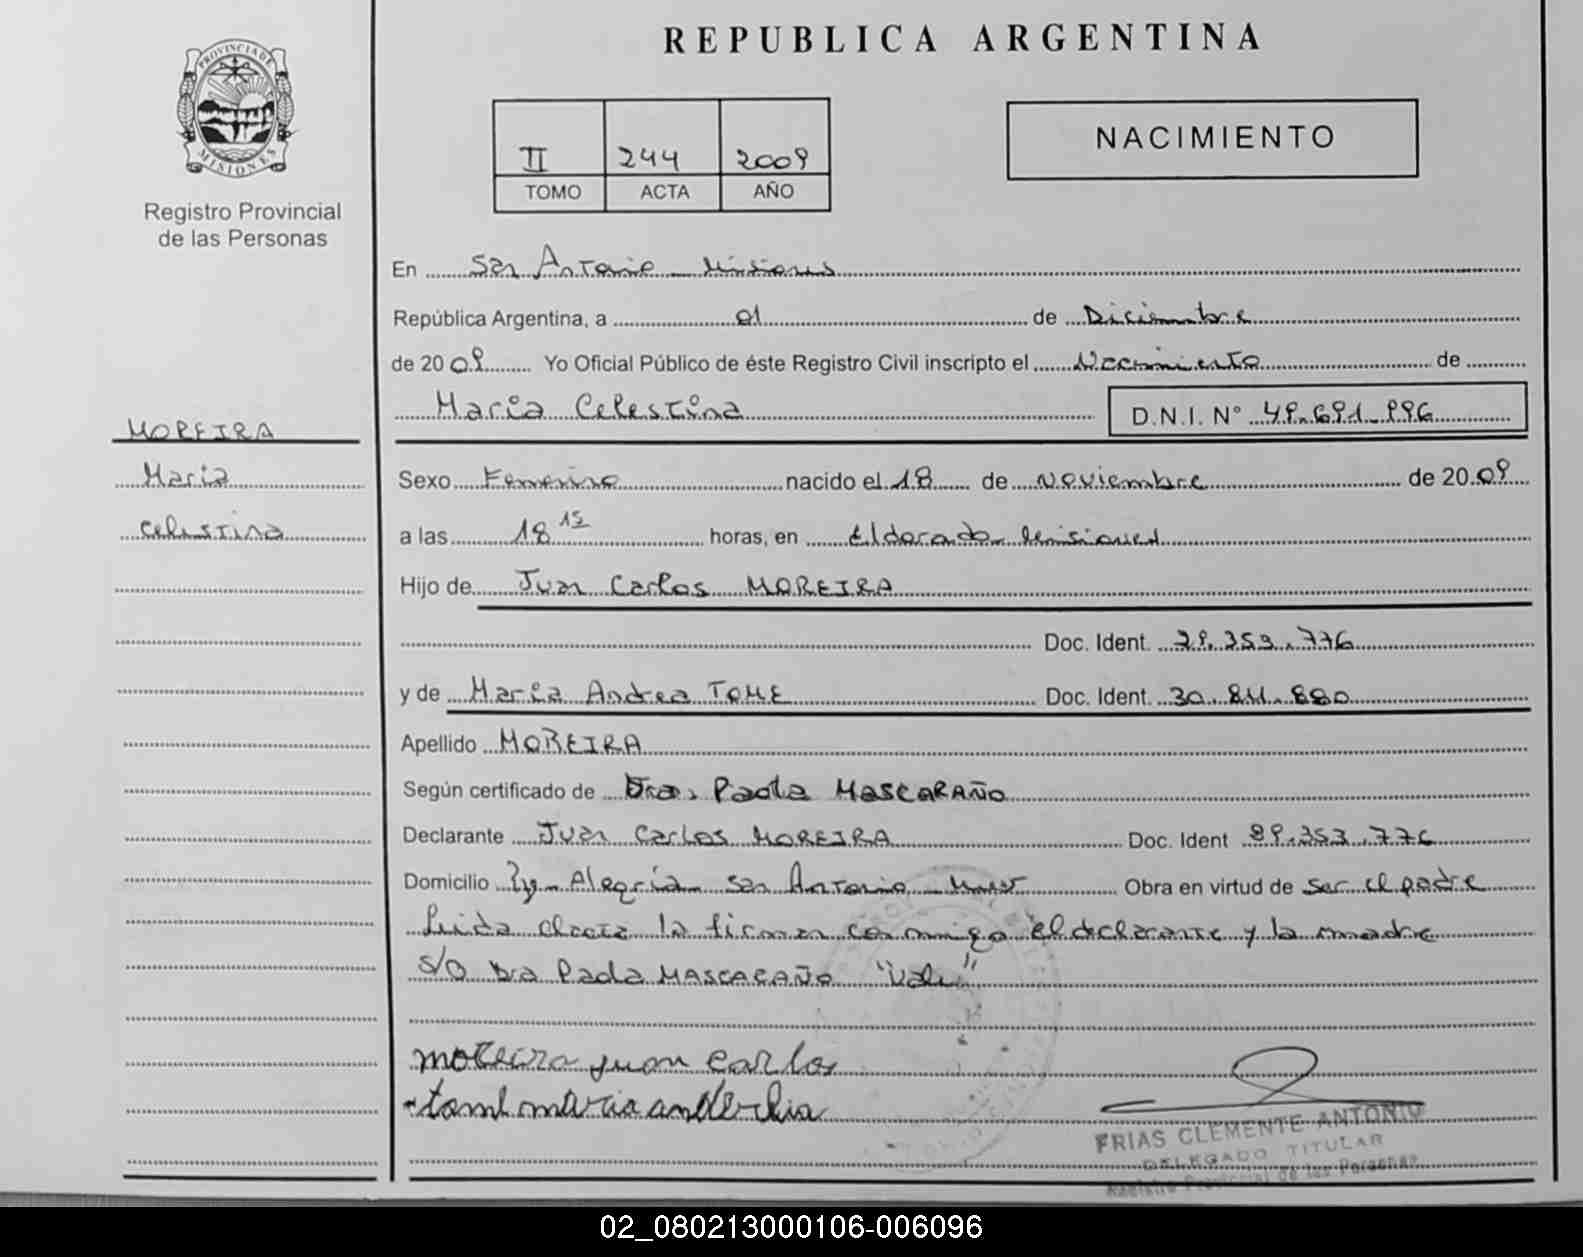 PROVINCIA DE
MISIONES
Registro Provincial
de las Personas
MOREIRA
Maria
Celestina
REPUBLICA ARGENTINA
II 244 2009
TOMO ACTA AÑO
NACIMIENTO
En San Antonio - Misiones
República Argentina, a 01 de Diciembre
de 20 09 Yo Oficial Público de éste Registro Civil inscripto el Nacimiento de
Maria Celestina D.N.I. N° 49.691.996
Sexo Femenino nacido el 18 de Noviembre de 20 09
a las 18 15 horas, en Eldorado Misiones
Hijo de Juan Carlos MOREIRA
Doc. Ident. 29.353.776
y de Maria Andrea TOME Doc. Ident. 30.811.880
Apellido MOREIRA
Según certificado de Dra. Paola MASCARAÑO
Declarante Juan Carlos MOREIRA Doc. Ident 29.353.776
Domicilio Alegría San Antonio Obra en virtud de ser el padre
Leida el acta la firman conmigo el declarante y la madre
S/O Dra Paola MASCARAÑO "Vale"
moreira juan carlos
tome maria
FRIAS CLEMENTE ANTONIO
DELEGADO TITULAR
Registro Provincial de las Personas
02_080213000106-006096